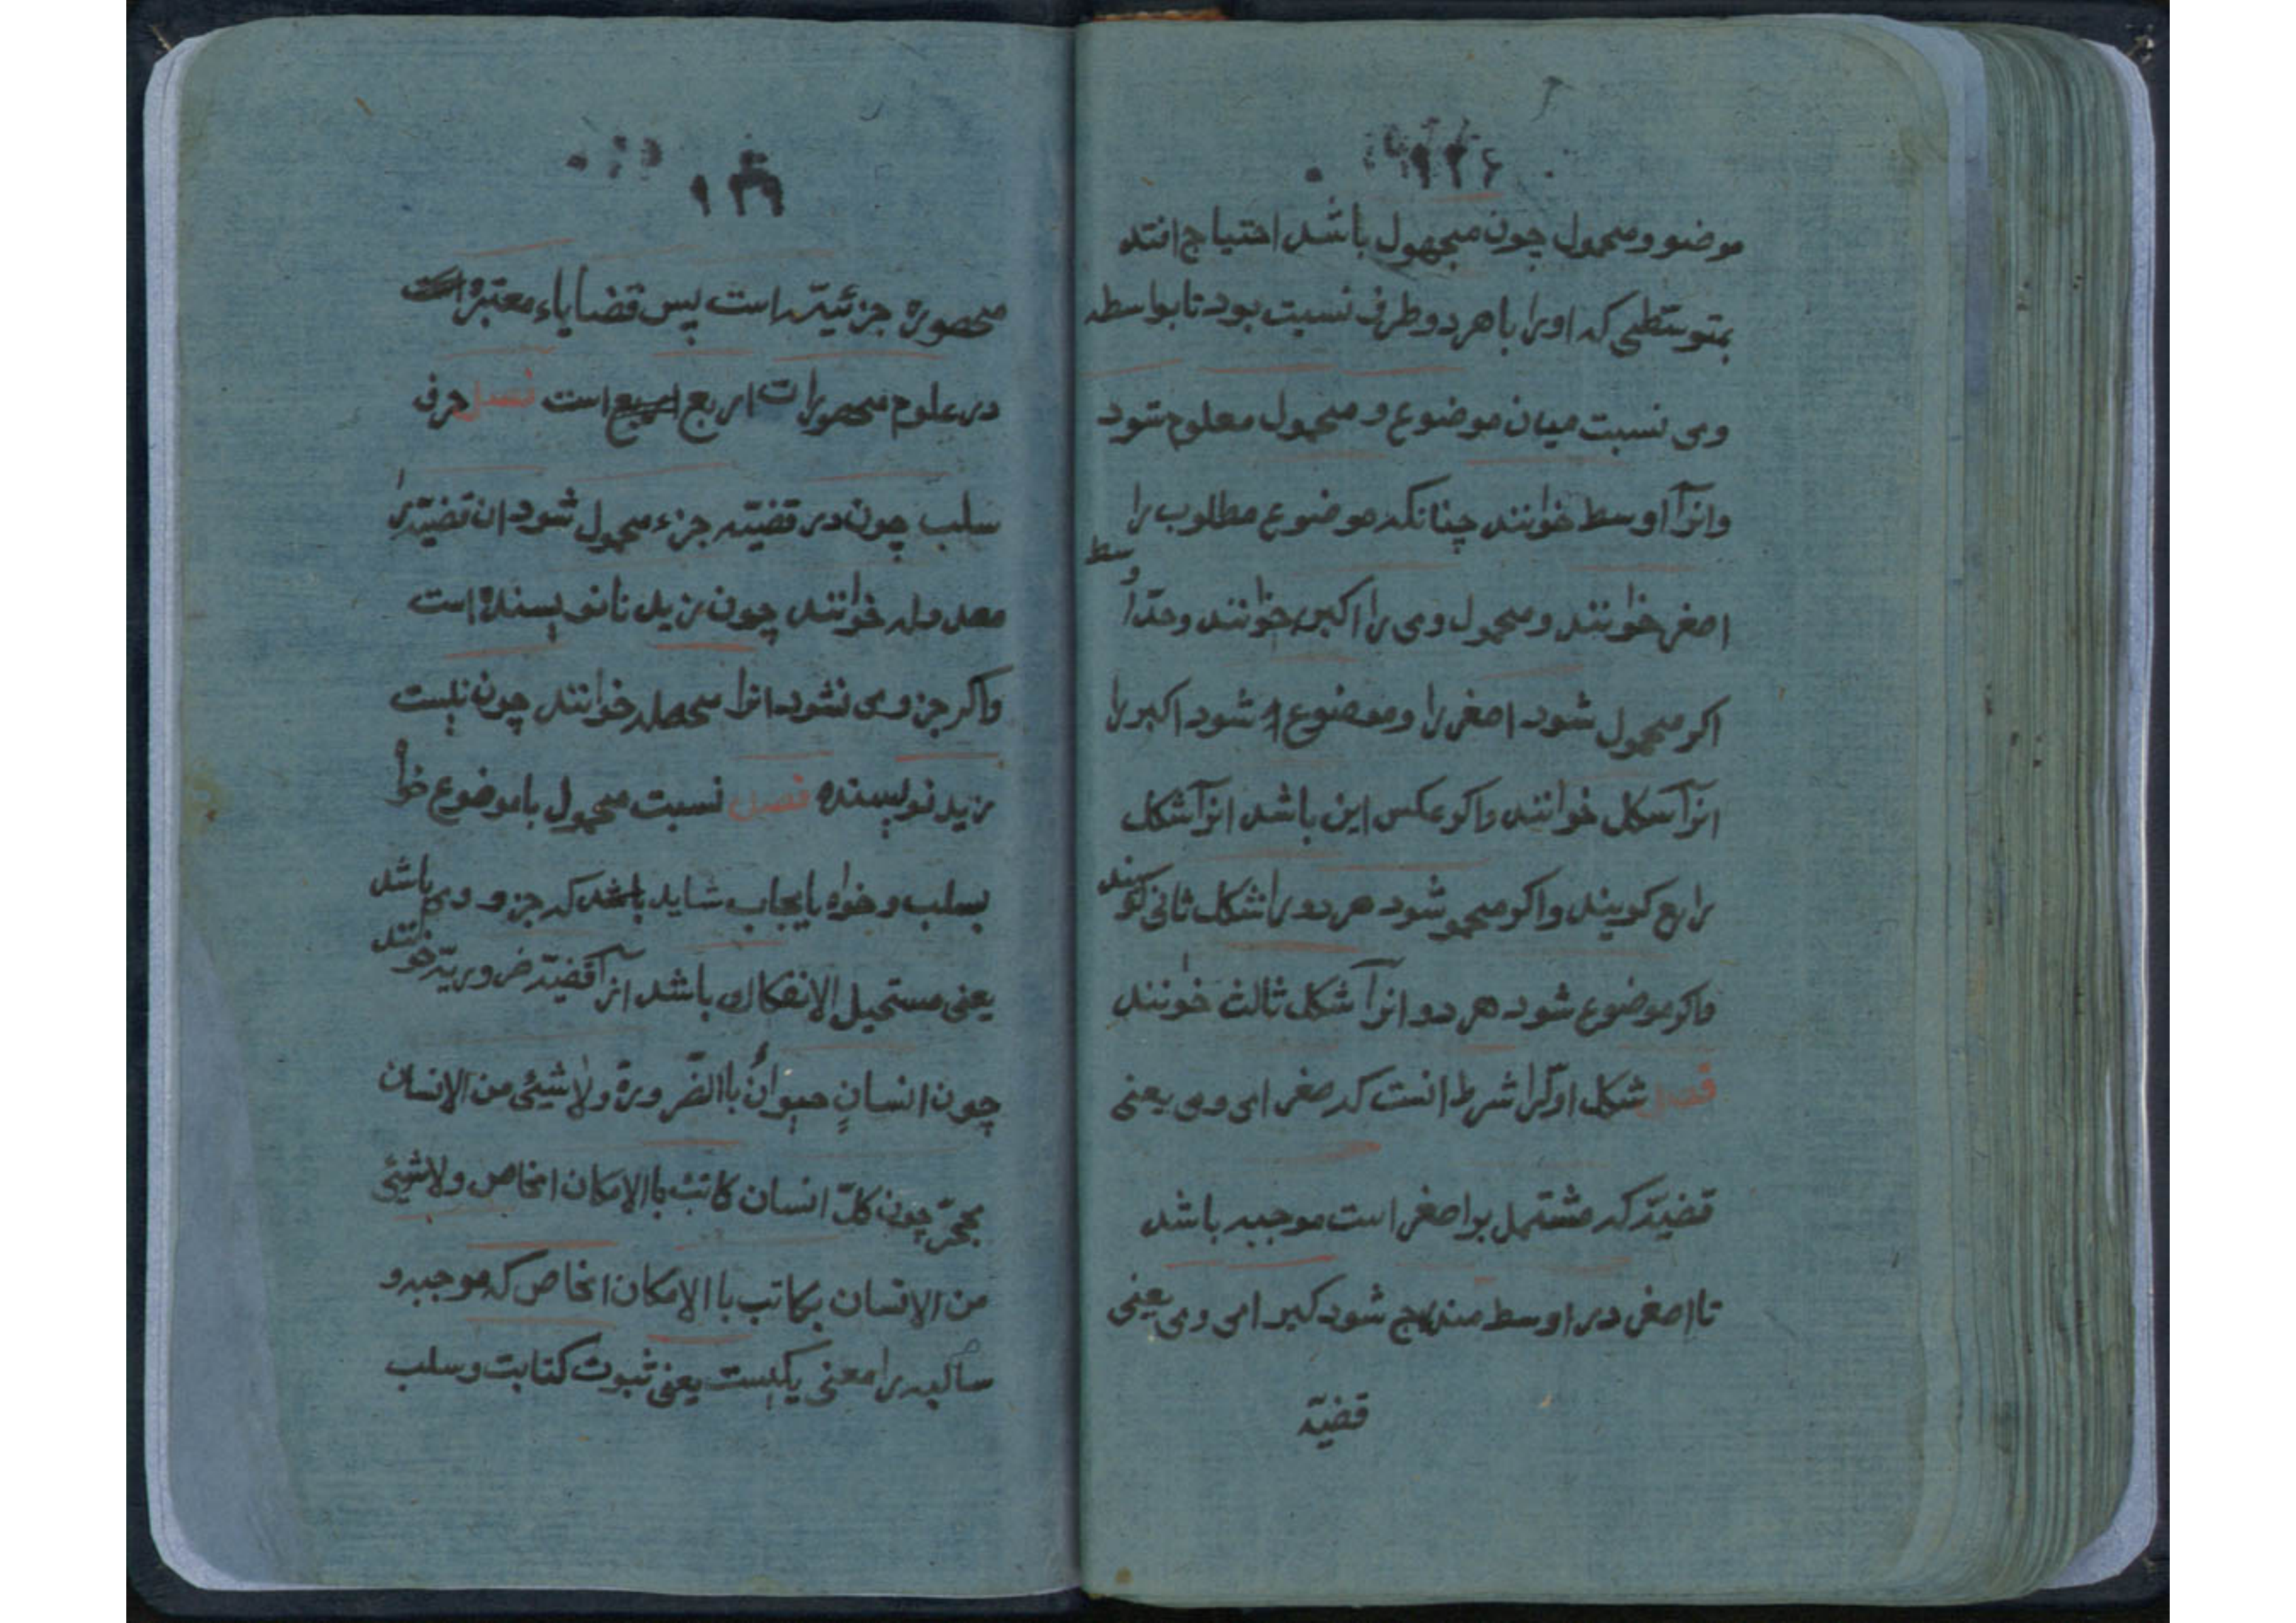 موضوو محمول چون مجهول باشد احتیاج افتد
بمتوسّطی که اورا با هر دو طرف نسبت بود تا بواسطه
وی نسبت میان موضوع و محمول معلوم شود
وانرآ اوسط خوانند چنانکه موضوع مطلوب را
اصغر خوانند و محمول وی را اکبر خوانند و حدّ اوسط
اکر محمول شود اصغر را و موضوع شود اکبر را
انرآ شکل خوانند واکر عکس این باشد انرآ شکل
رابع کویند واکر محمو شود هر دو را شکل ثانی کویند
واکر موضوع شود هر دو انرآ شکل ثالث خوانند
فصل شکل اوّلرا شرط انست که صغرای وی یعنی
قضیّه که مشتمل بر اصغر است موجبه باشد
تا اصغر در اوسط مندرج شود کبرای وی یعنی
قضیّه
۱۳۹
محصوره جزئیّه است پس قضایاء معتبره
در علوم محصورات اربع است فصل حرف
سلب چون در قضیّه جزء محمول شود ان قضیّه را
معدوله خوانند چون زید نانویسنده است
واکر جزو وی نشود انرا محصله خوانند چون نیست
زید نویسنده فصل نسبت محمول با موضوع خواه
بسلب و خواه بایجاب شاید که جزو وی باشد
یعنی مستحیل الانفکاک باشد انرآ قضیّه ضروریّه خوانند
چون انسانٍ حیوانٌ باالضّرورة ولاشیئ من الانسان
بحجرّ چون کلّ انسان کاتبٌ باالامکان الخاص ولاشیئ
من الانسان بکاتب باالامکان الخاص که موجبه و
سالبه را معنی یکیست یعنی ثبوت کتابت و سلب